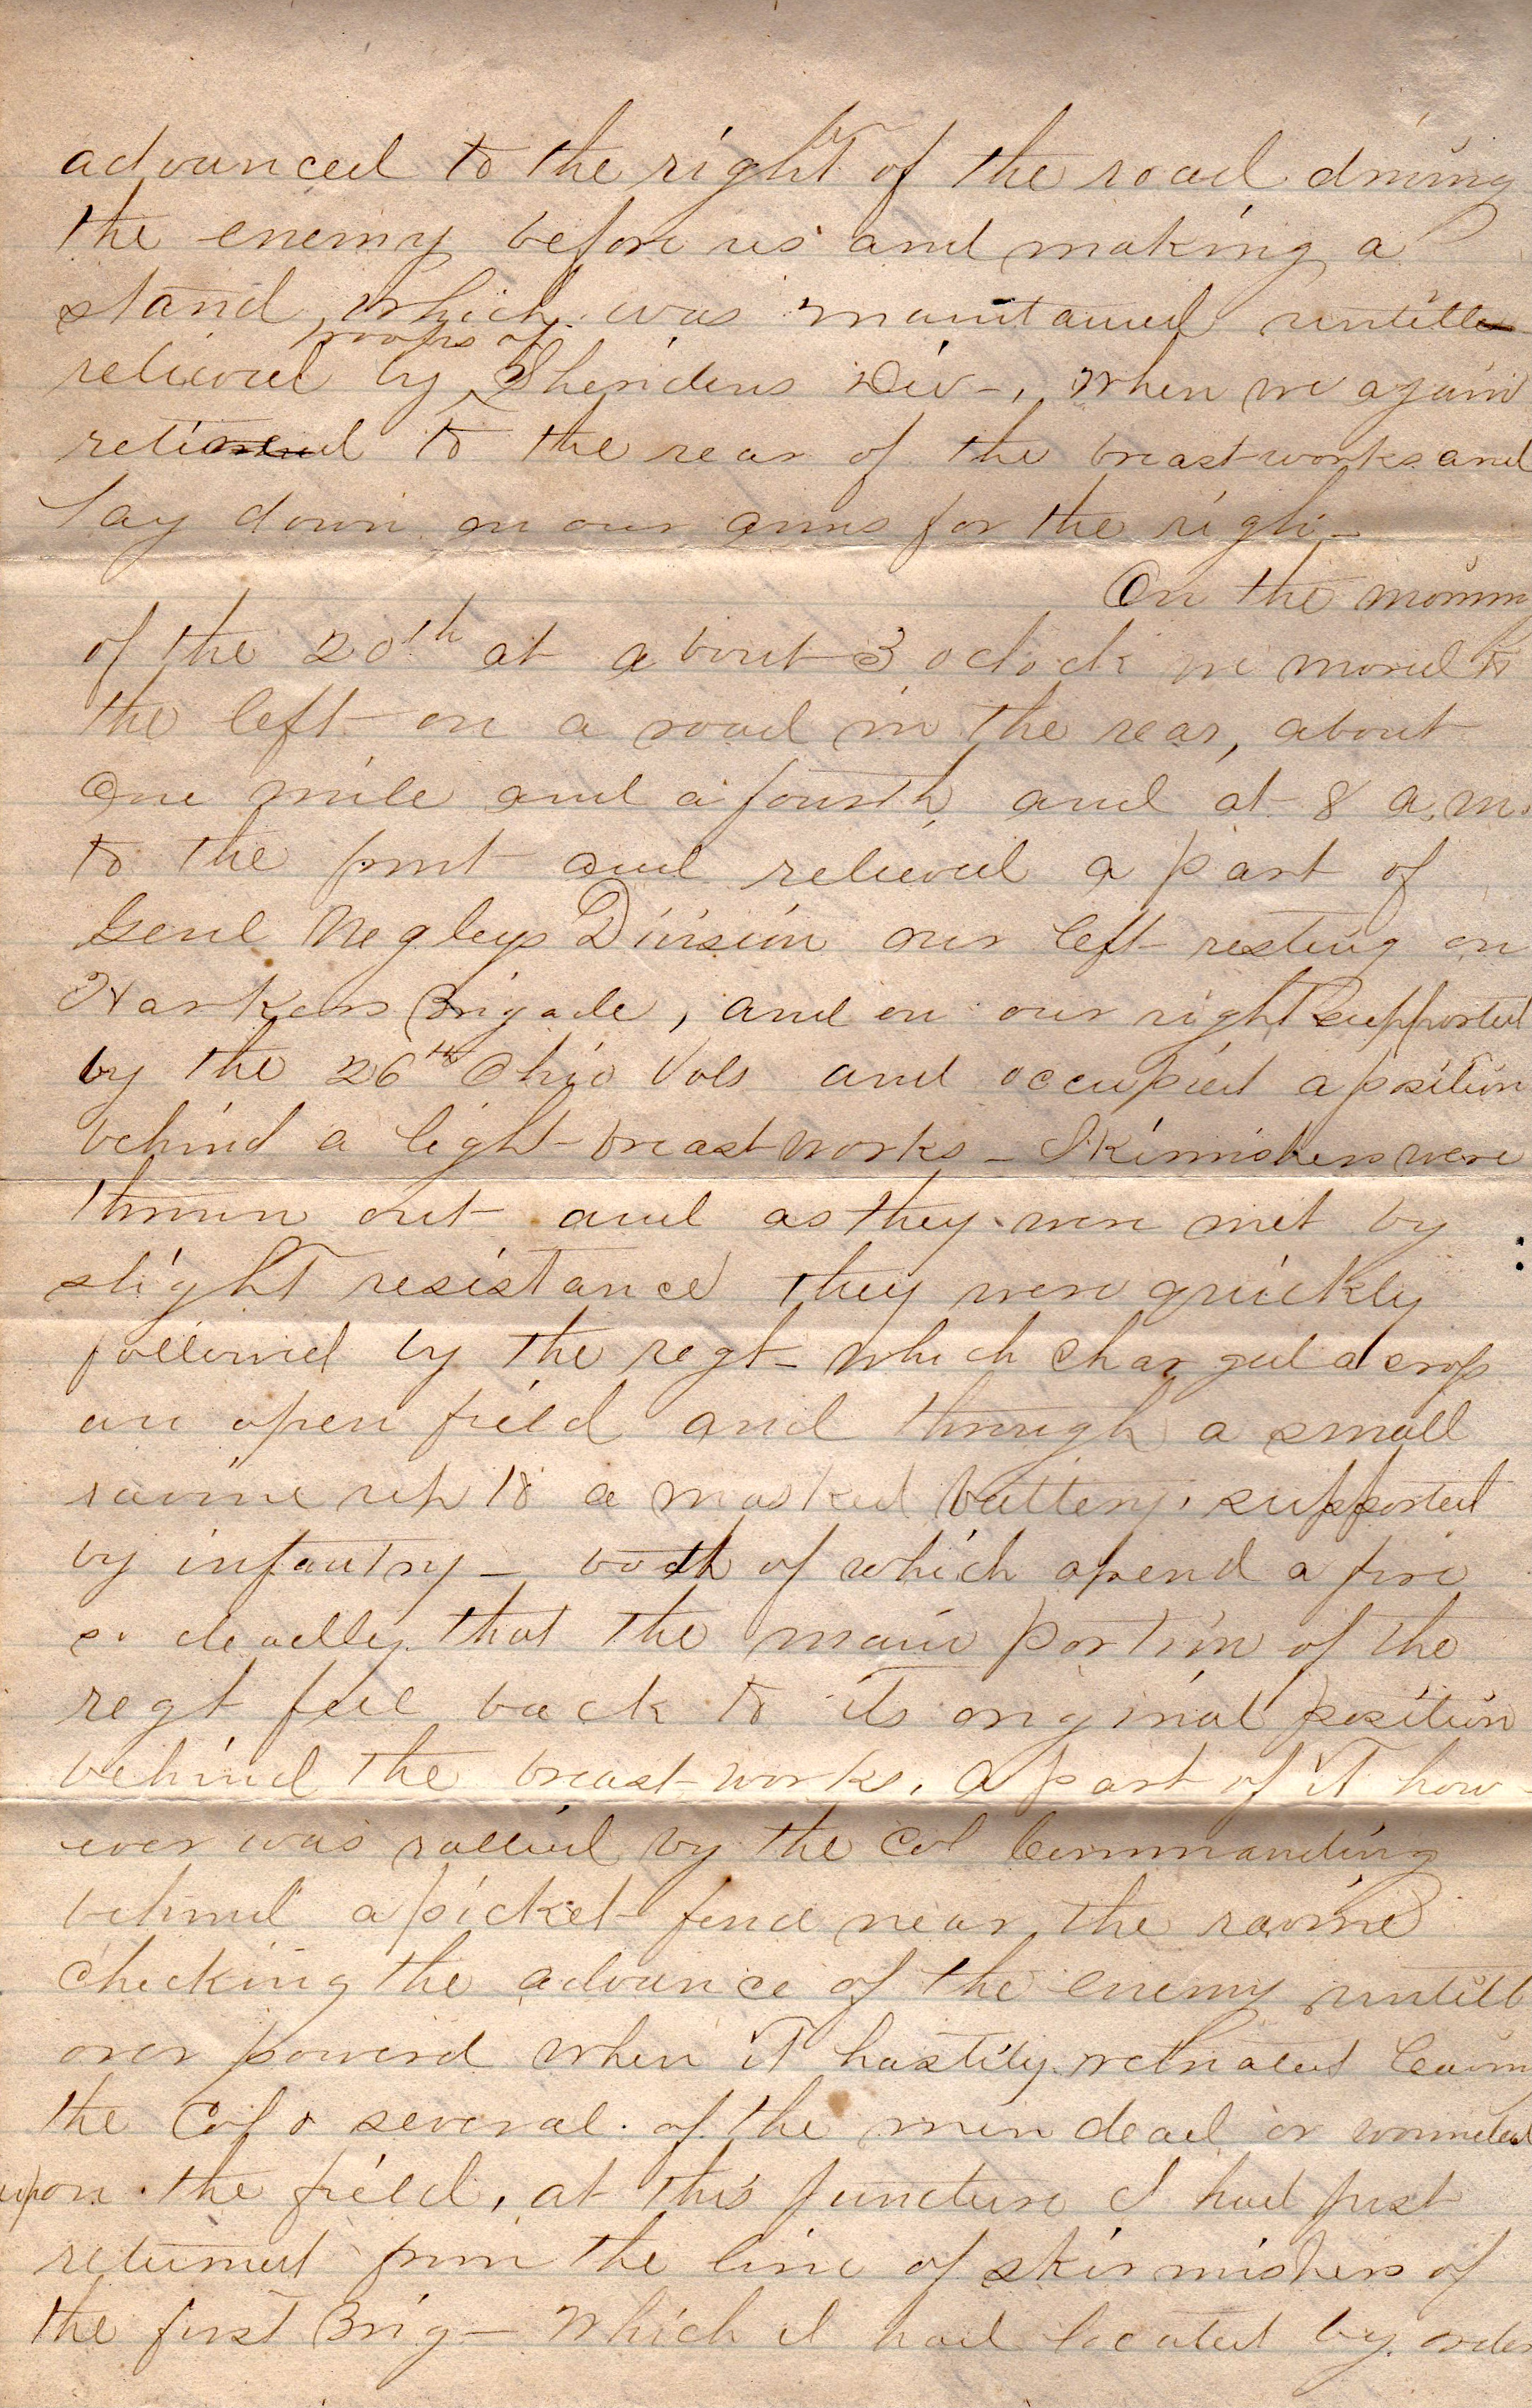 advanced to the right of the road driving
the enemy before us and making a
stand which was maintained untill
troops of
relieved by Sheridens Div-, when we again
retired to the rear of the breastworks and
lay down on our arms for the night-
On the morning
of the 20th at about 3 oclock we moved to
the left on a road in the rear, about
One mile and a fourth and at 8 a.m.
to the front and relieved a part of
Genl Negleys Division our left resting on
Harkers Brigade, and on our right supported
by the 26th Ohio Vols and occupied a position
behind a light breastworks - Skirmishers were
thrown out and as they were met by
slight resistance they were quickly
followed by the regt- which charged across
an open field and through a small
ravine up to a masked battery, supported
by infantry - both of which opend a fire
so deadly that the main portion of the
regt fell back to its original position
behind the breast-works, a part of it how-
ever was rallied by the Col Commanding
behind a picket fence near the ravine
checking the advance of the enemy untill
over powerd when it hastily retreated leaving
the Col & several of the men dead or wounded
upon the field, at this juncture I had just
returned from the line of skirmishers of
the first Brig- which I had located by order